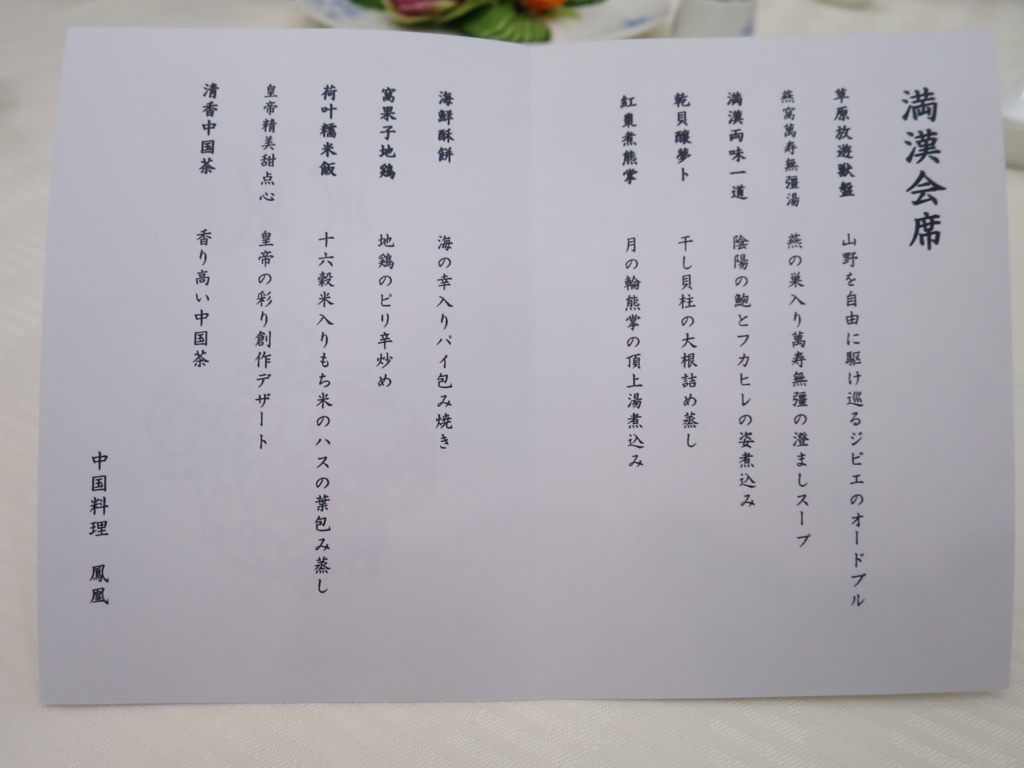 満漢会席
草原放遊獣盤 山野を自由に駆け巡るジビエのオードブル
燕窩萬寿無彊湯 燕の巣入り萬寿無彊の澄ましスープ
満漢両味一道 陰陽の鮑とフカヒレの姿煮込み
乾貝釀夢ト 干し貝柱の大根詰め蒸し
紅棗煮熊掌 月の輪熊掌の頂上湯煮込み
海鮮酥餅 海の幸入りパイ包み焼き
窩果子地鶏 地鶏のピリ辛炒め
荷叶糯米飯 十六穀米入りもち米のハスの葉包み蒸し
皇帝精美甜点心 皇帝の彩り創作デザート
清香中国茶 香り高い中国茶
中国料理 鳳凰